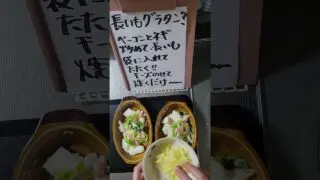 長いもグラタン?
ベーコンとネギ
炒めて長いも
袋に入れて
たたく!!
チーズのせて
焼くだけ〜